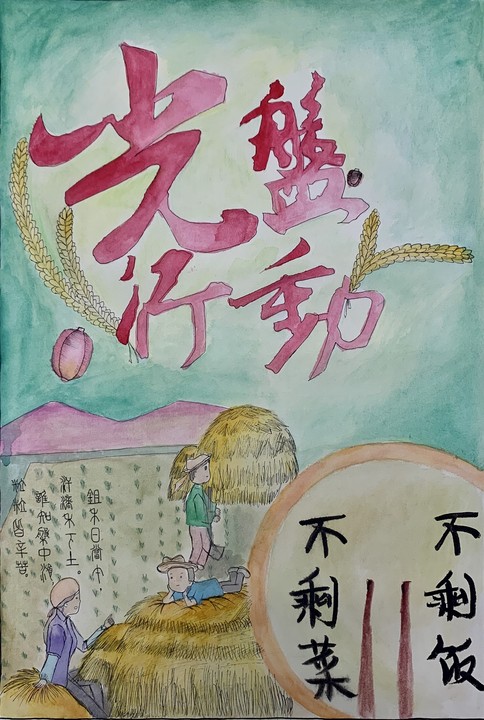 光盤
行動
鉏禾日當午,
汗滴禾下土。
誰知盤中湌
粒粒皆辛苦
不剩饭
不剩菜